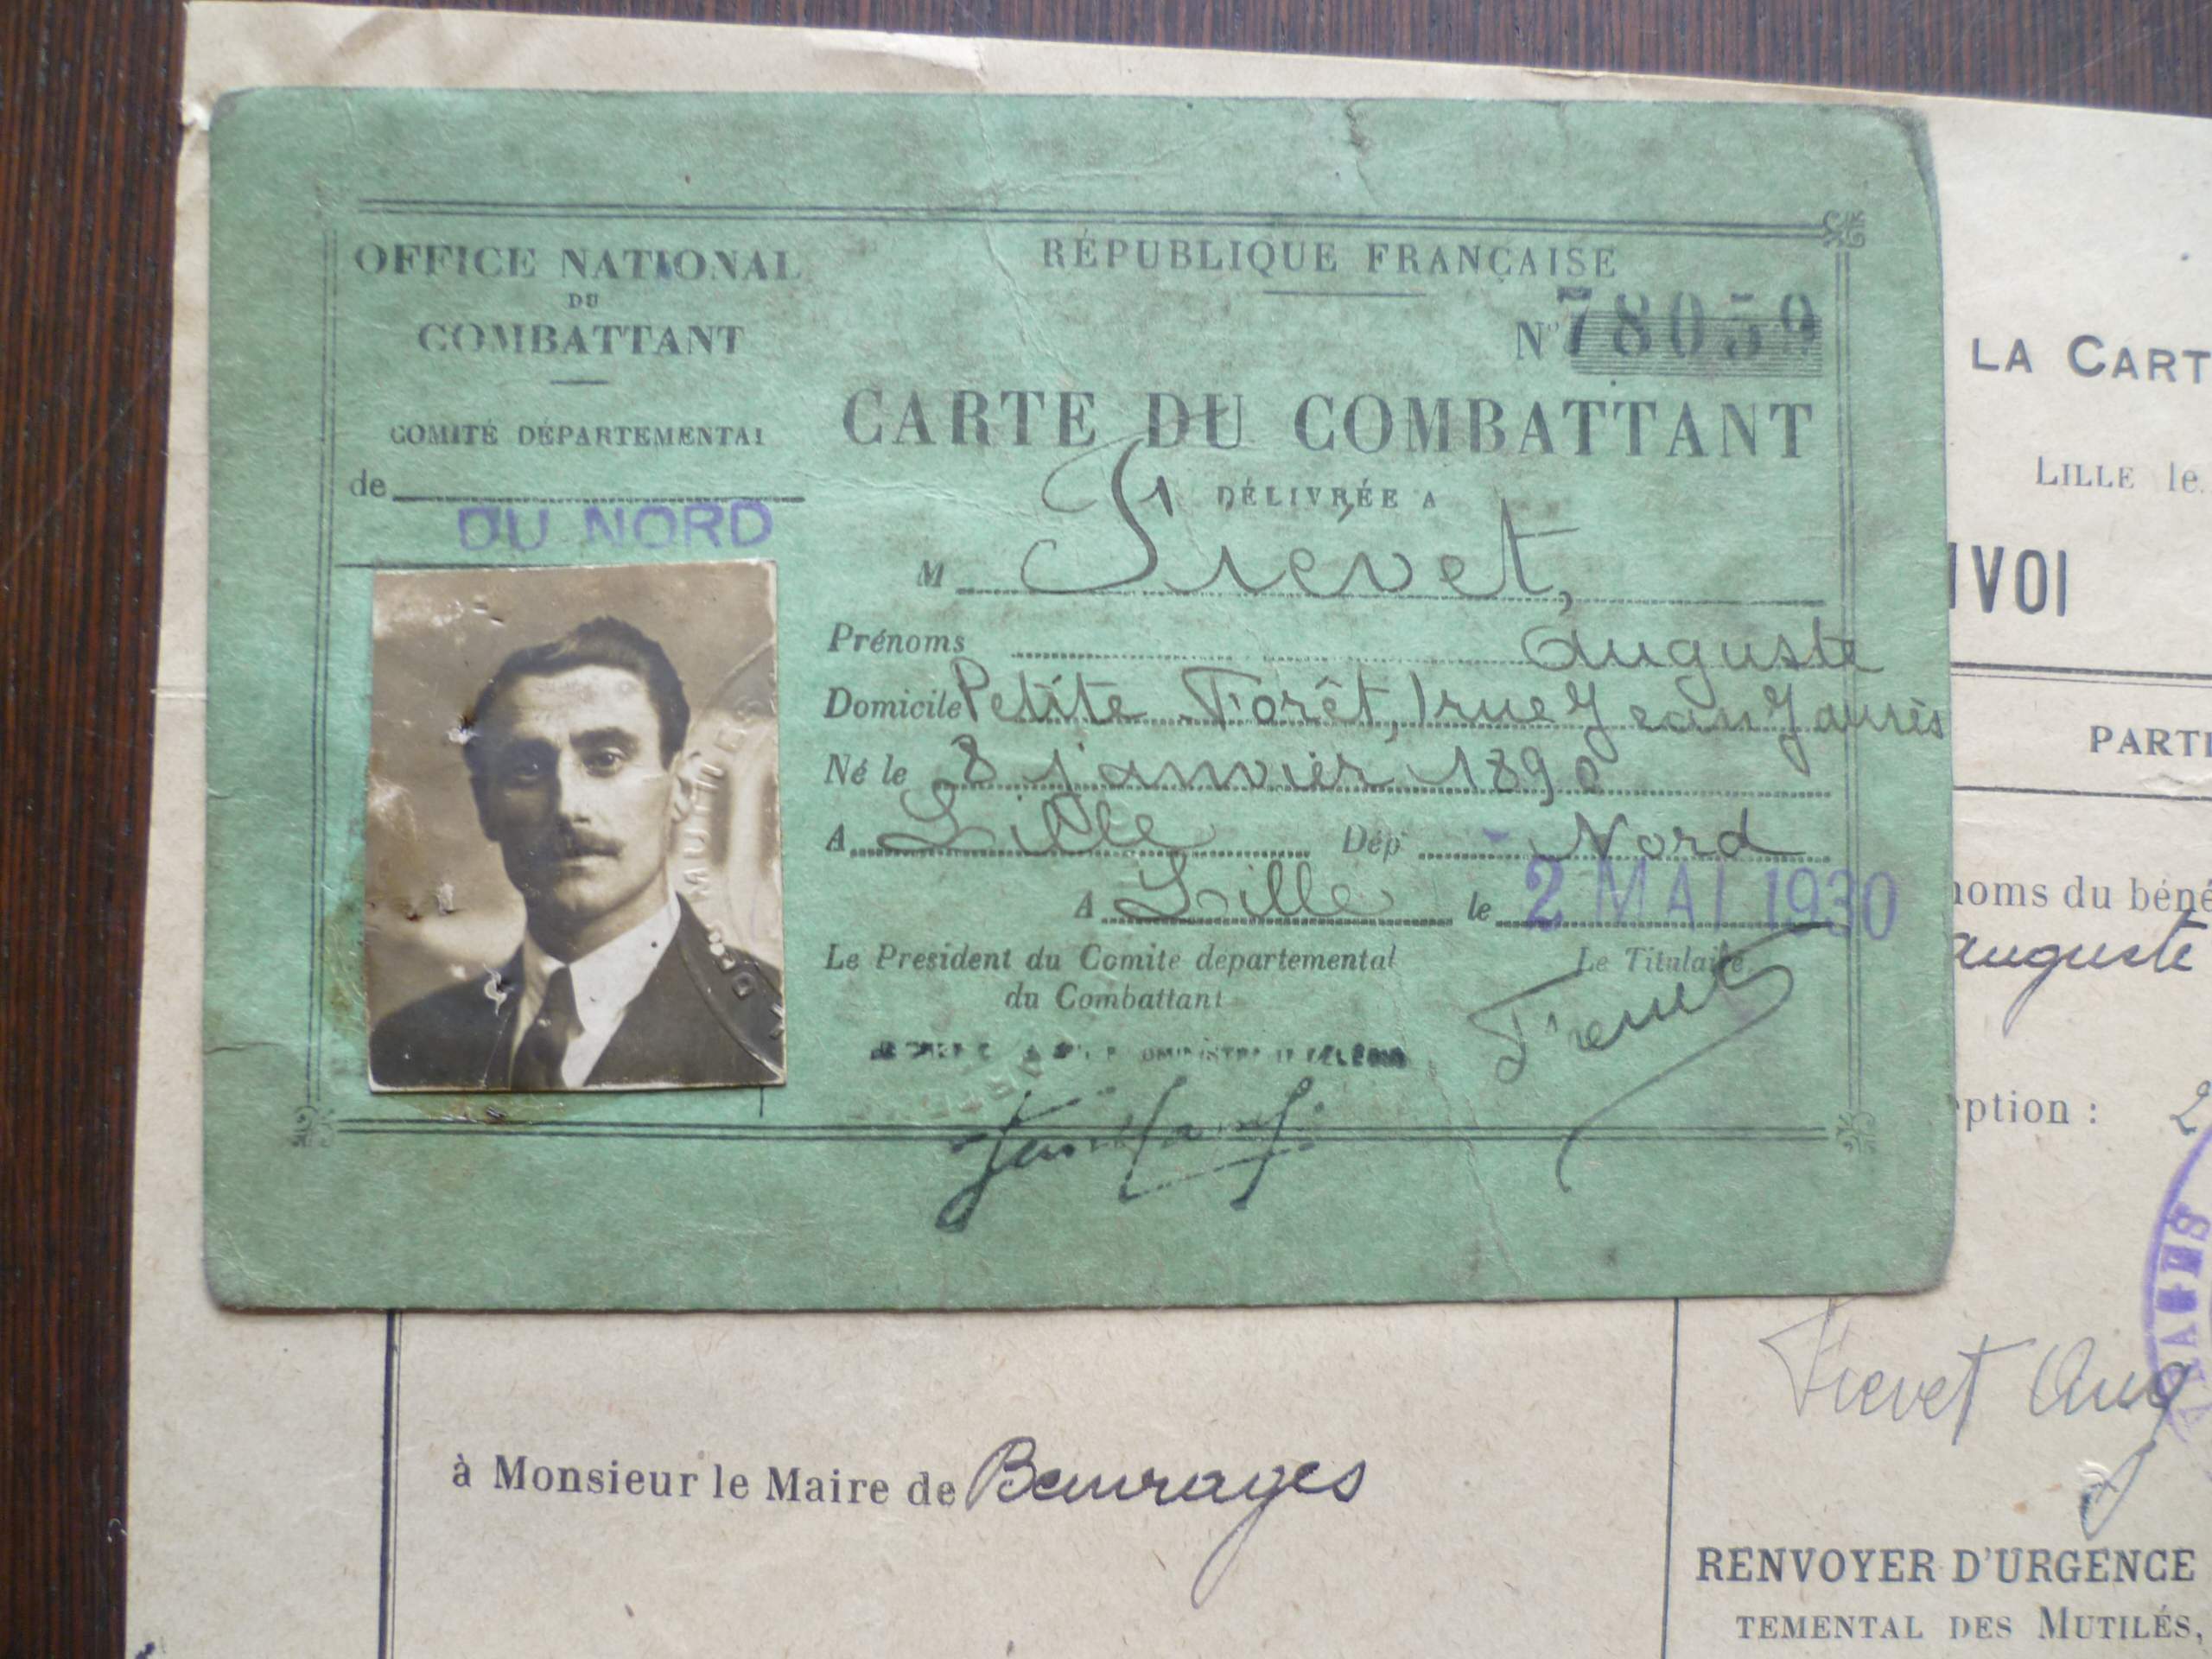 OFFICE NATIONAL
DU
COMBATTANT
COMITÉ DÉPARTEMENTAL
de
DU NORD
RÉPUBLIQUE FRANÇAISE
N° 78059
CARTE DU COMBATTANT
DÉLIVRÉE A
M Frévet,
Prénoms Auguste
Domicile Petite Forêt, 1 rue Jean Jaurès
Né le 8 janvier 1890
A Lille Dép Nord
A Lille le 2 MAI 1930
Le Président du Comité départemental
du Combattant
Le Titulaire
Frevet
MUTILÉS
LA CART
LILLE le
VOI
PARTI
noms du béné
auguste
ption : 2
Frevet Aug
à Monsieur le Maire de Beuvrages
RENVOYER D'URGENCE
TEMENTAL DES MUTILÉS,